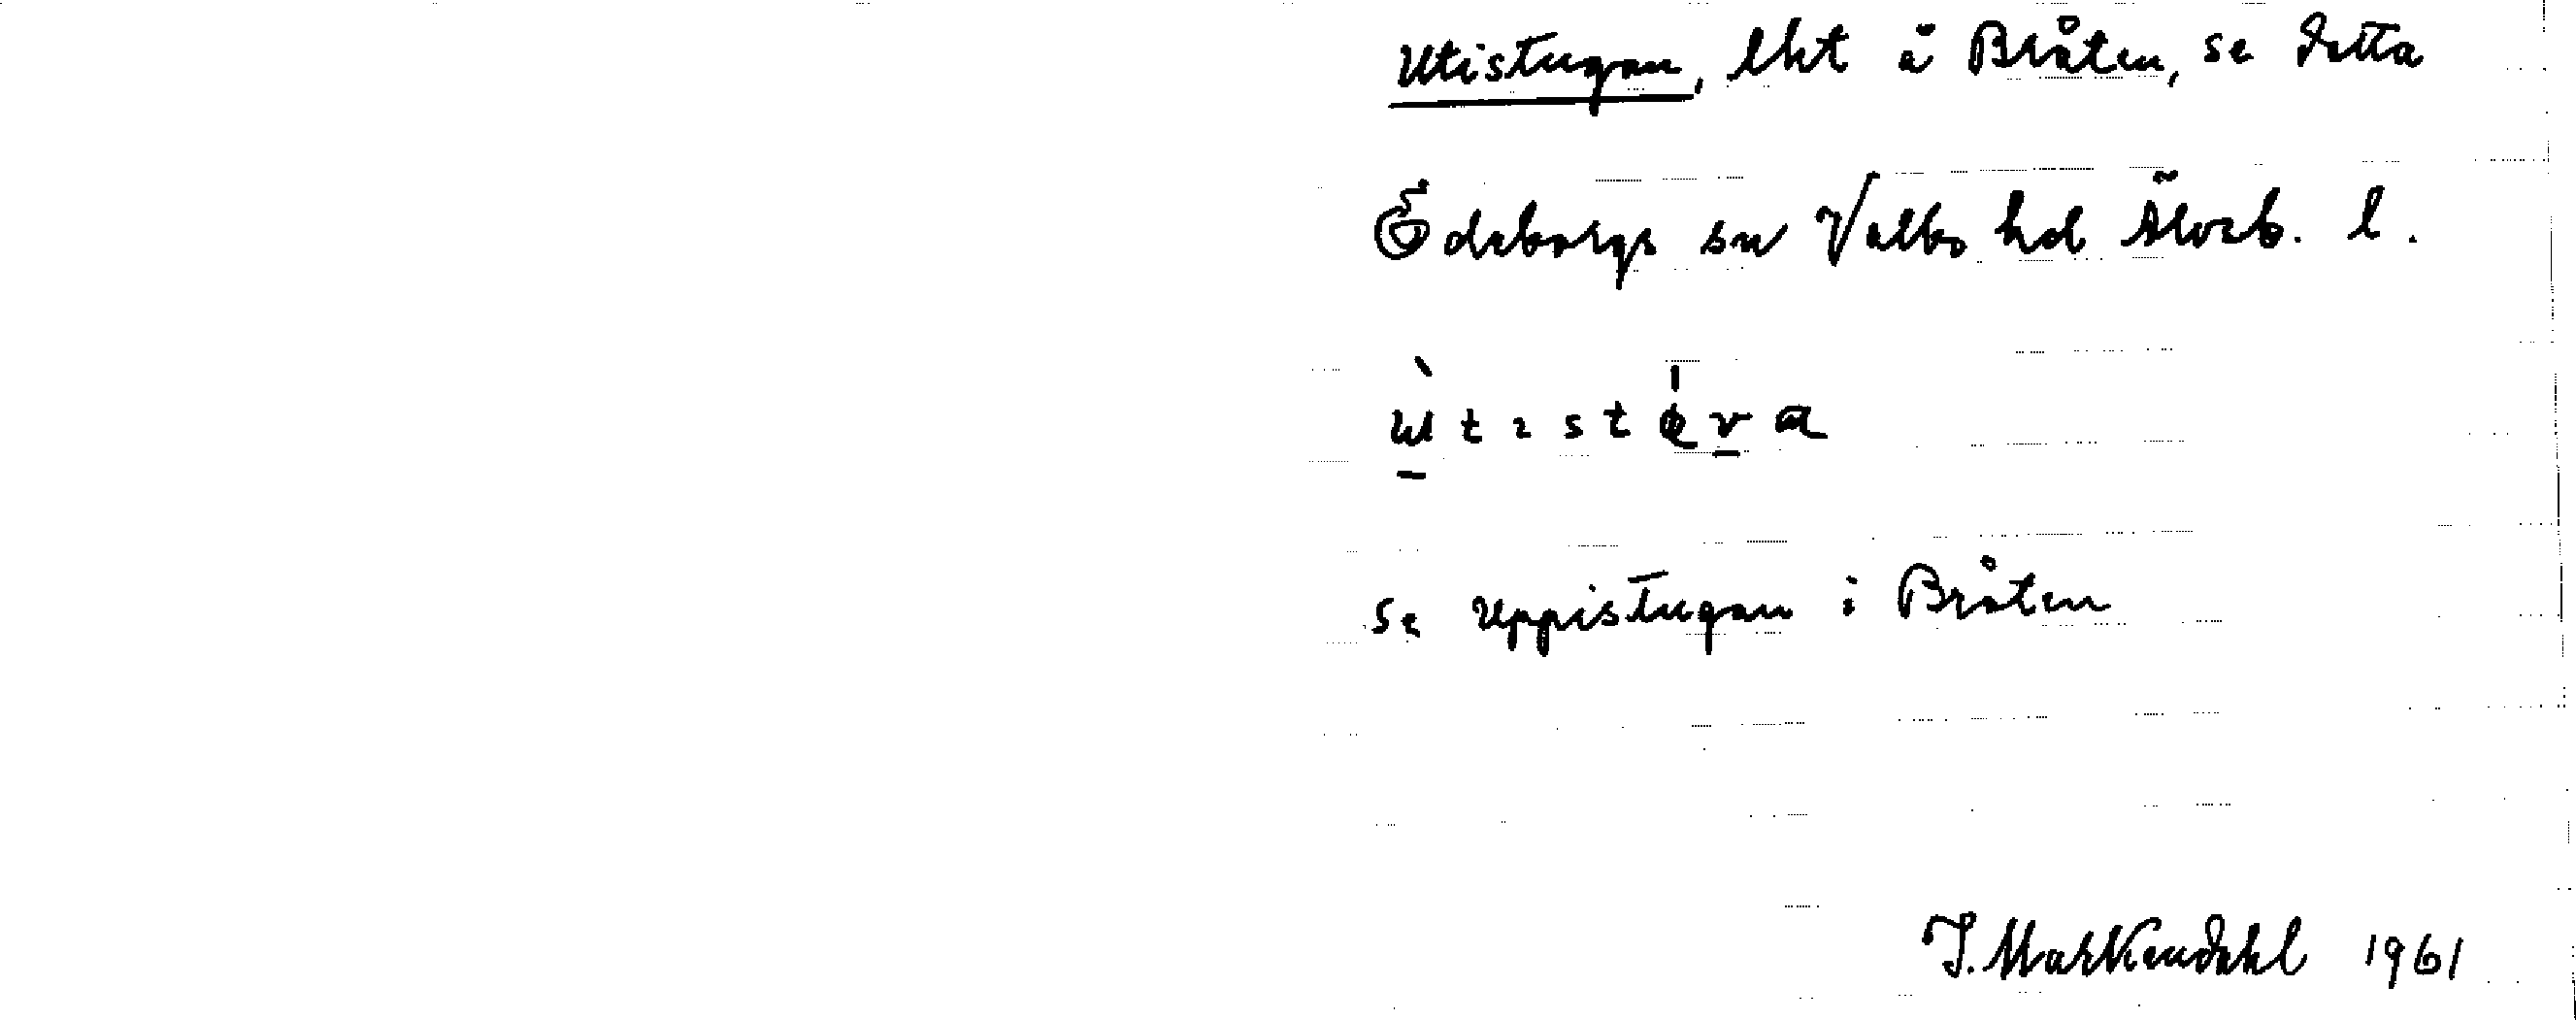 Utistugan, lht å Bråten, se detta
Ödeborgs sn Valbo hd Älvsb. l.
se uppistugan i Bråten
J. Markendahl 1961